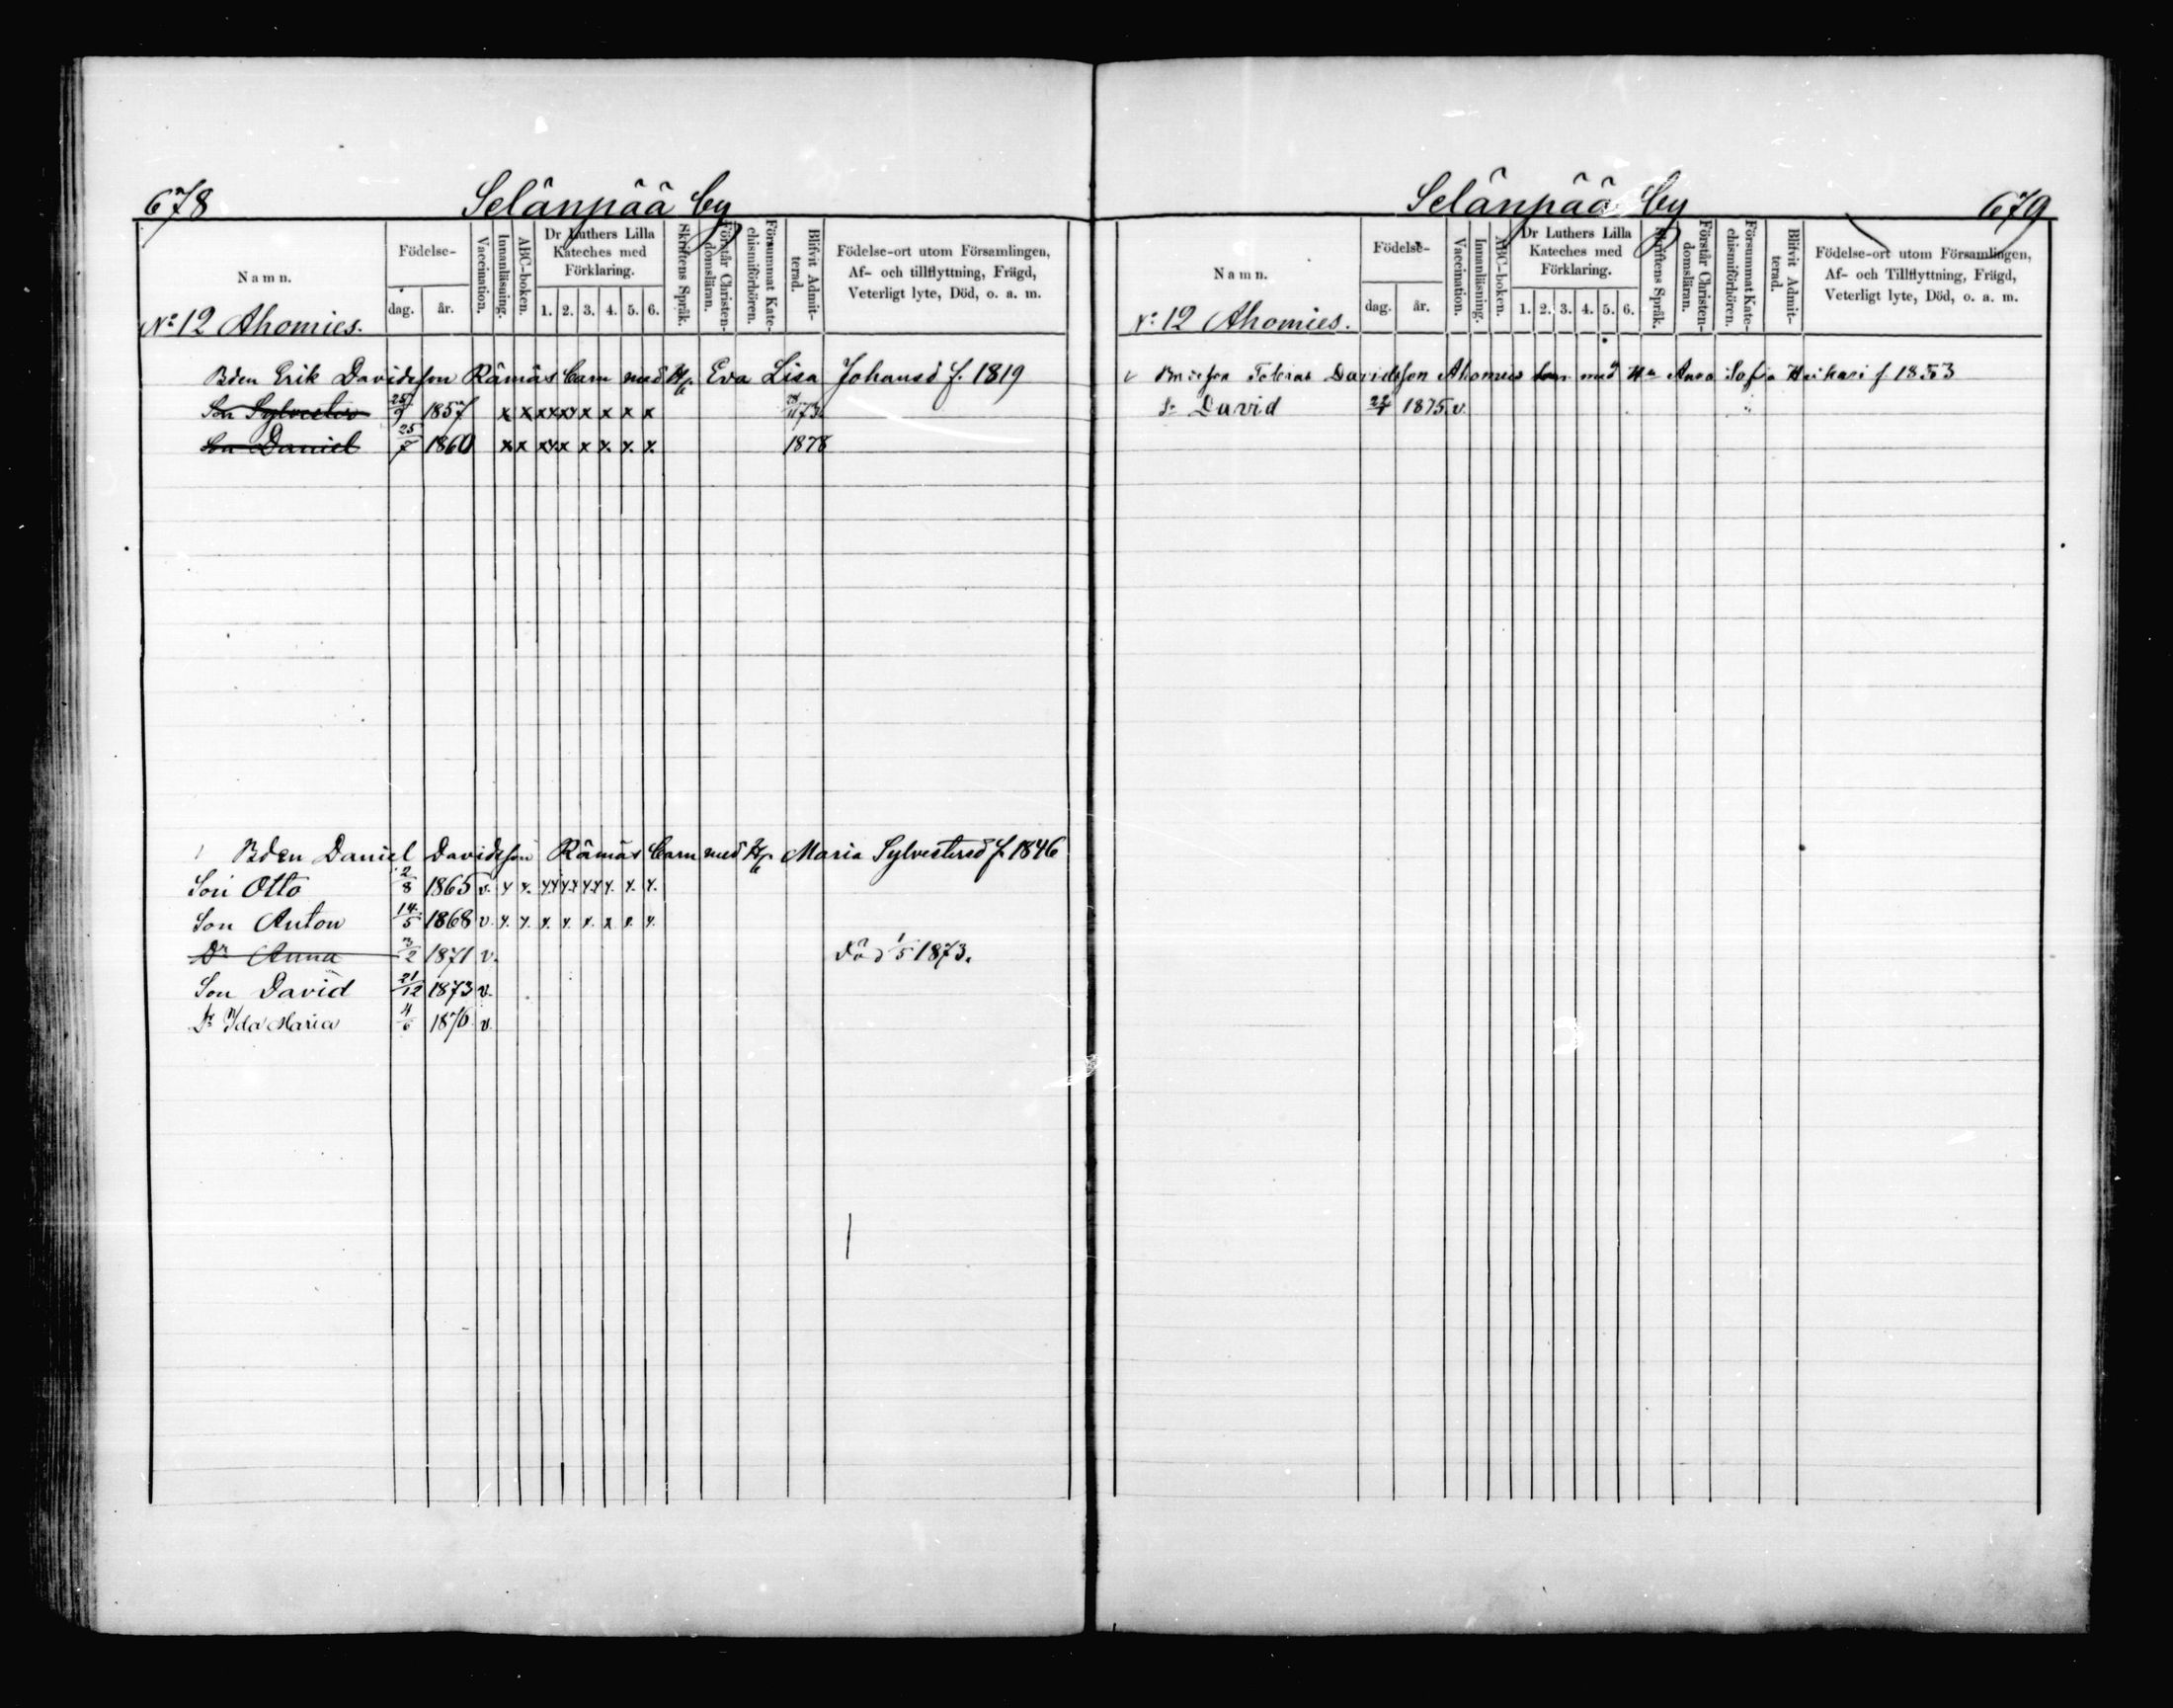 678 Selänpää by
Namn. Födelse- dag. år. Vaccination. Innanläsning. ABC-boken. Dr Luthers Lilla Kateches med Förklaring. 1. 2. 3. 4. 5. 6. Skriftens Språk. Förstår Christendomsläran. Försummat Katechismiförhören. Blifvit Admitterad. Födelse-ort utom Församlingen, Af- och tillflyttning, Frägd, Veterligt lyte, Död, o. a. m.
No 12 Ahomies.
Bden Erik Davidsson Rämäs barn med Eva Lisa Johansd f. 1819
Son Sylvester 25/9 1857 x x x x x x x x x 73
Son Daniel 25/7 1860 x x x x x x x x 1878
Bden Daniel Davidsson Rämäs barn med Maria Sylvestersd f. 1846
Son Otto 2/8 1865 v. x x. x x x x x x. x. x.
Son Anton 14/5 1868 v. x. x. x. x. x. x x. x.
Dr Anna 3/2 1871 v. Död 1/5 1873.
Son David 21/12 1873 v.
Dr Ida Maria 4/6 1876 v.
Selänpää by 679
Namn. Födelse- dag. år. Vaccination. Innanläsning. ABC-boken. Dr Luthers Lilla Kateches med Förklaring. 1. 2. 3. 4. 5. 6. Skriftens Språk. Förstår Christendomsläran. Försummat Katechismiförhören. Blifvit Admitterad. Födelse-ort utom Församlingen, Af- och Tillflyttning, Frägd, Veterligt lyte, Död, o. a. m.
No 12 Ahomies.
Tobias Davidsson Ahomies barn med Anna Sofia f. 1853
S. David 1875 v.